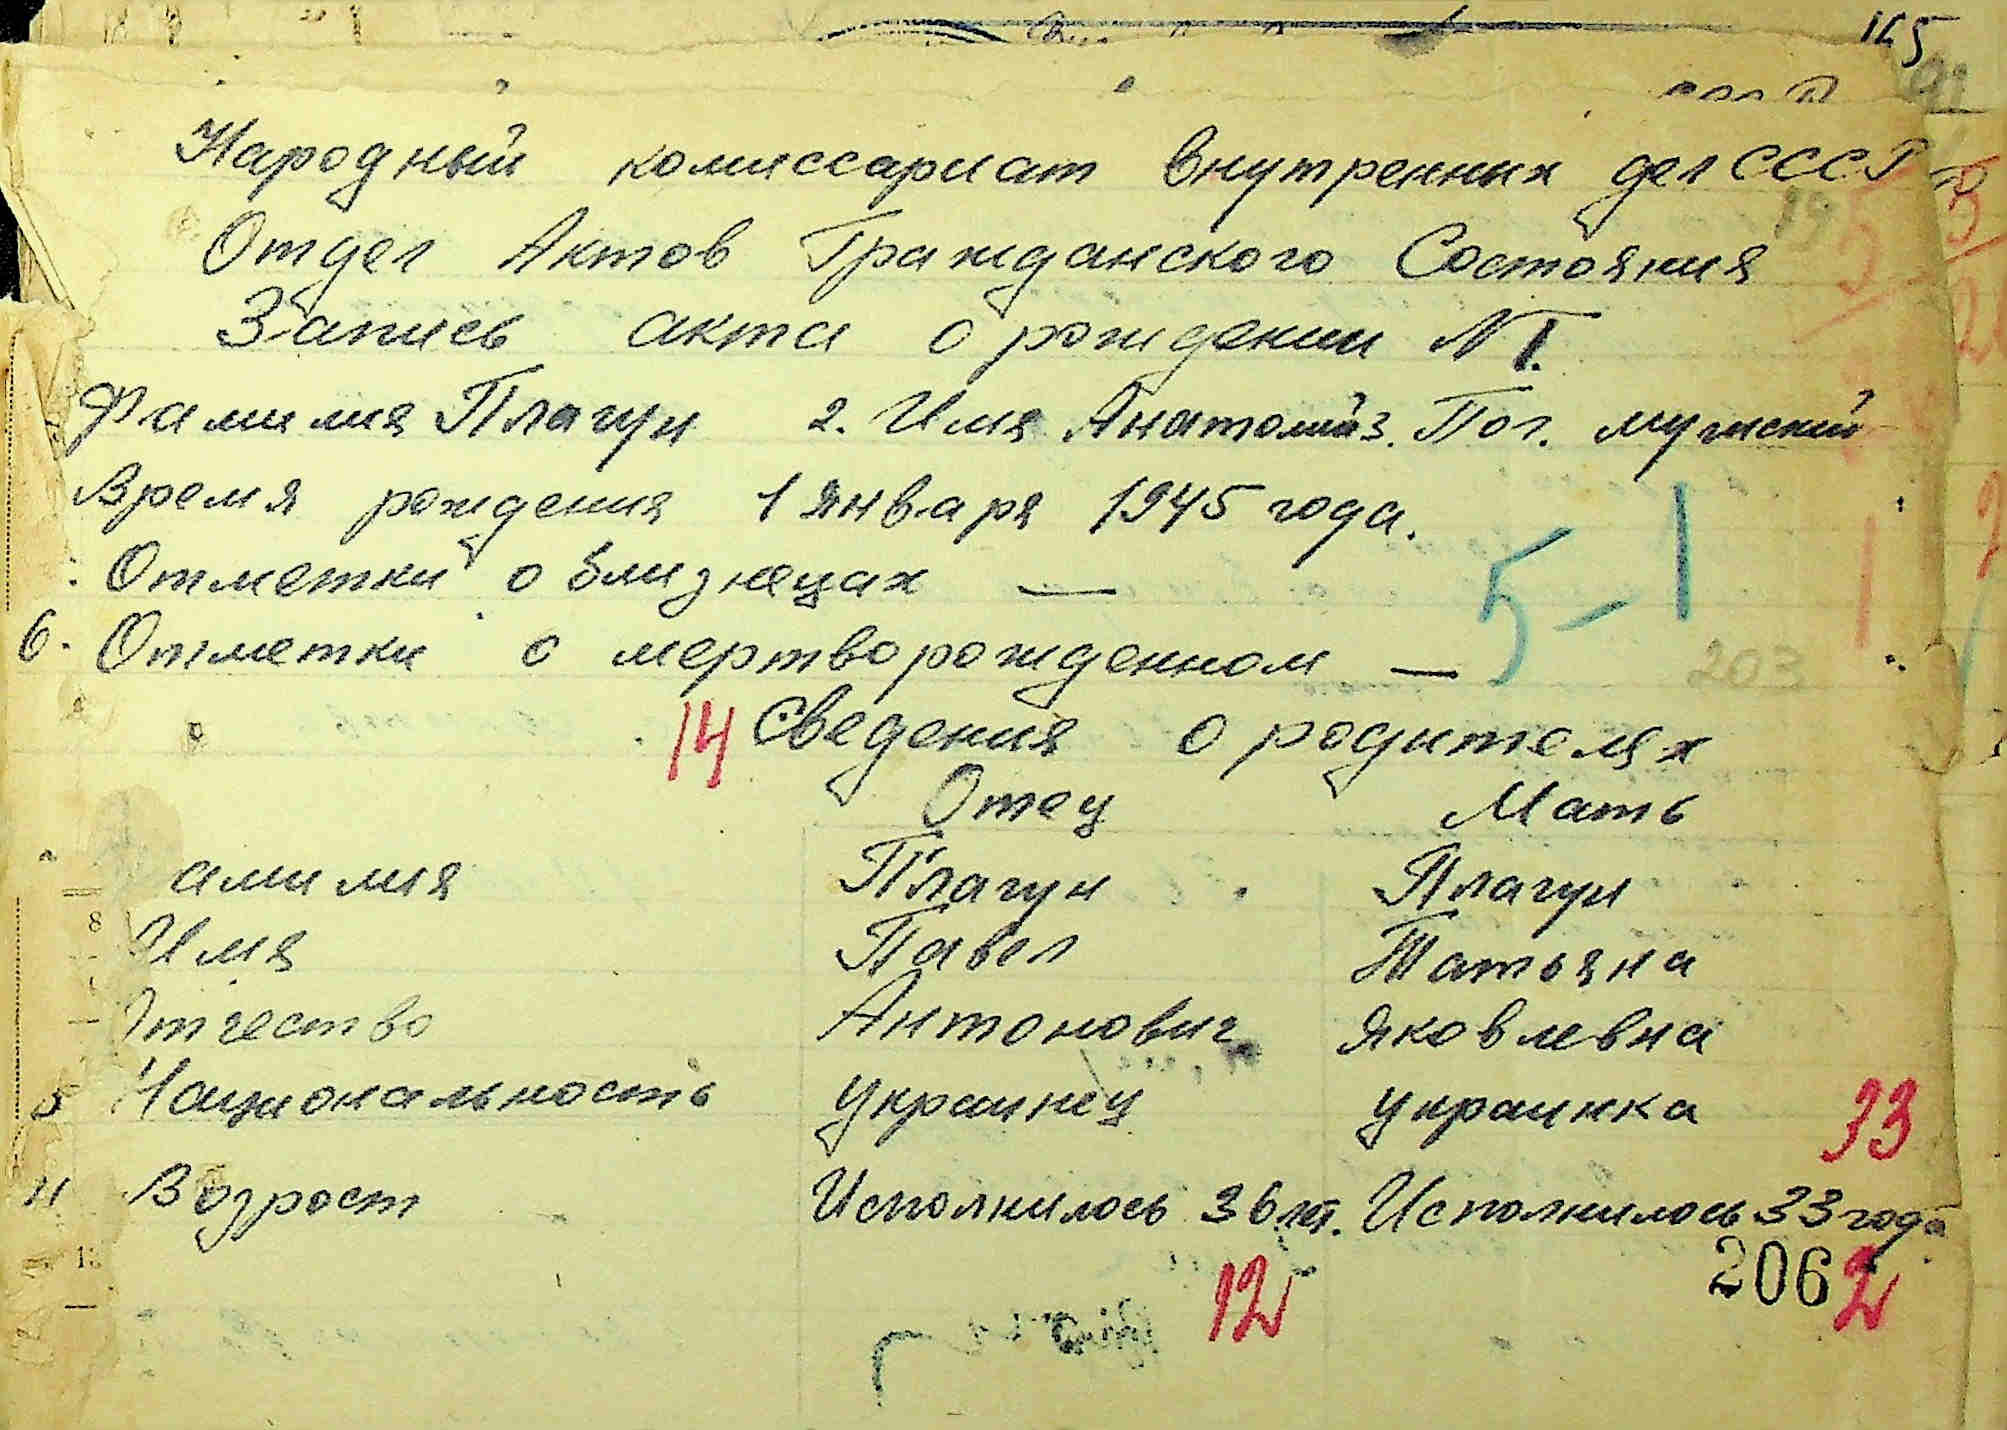 165
Народный комиссариат внутренних дел СССР
Отдел Актов Гражданского Состояния
Запись акта о рождении N 1.
Фамилия Плагун 2. Имя Анатолий 3. Пол. мужский
Время рождения 1 января 1945 года.
: Отметки о близнецах —
5-1
6. Отметки о мертворожденном —
203
14 Сведения о родителях
Отец Мать
амилия Плагун Плагун
8
Имя Павел Татьяна
тчество Антонович Яковлевна
Национальность украинец украинка
33
Возрост Исполнилось 36 лет. Исполнилось 33 года
12 206 2